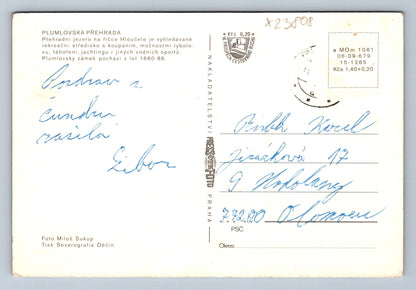 x23808
PLUMLOVSKÁ PŘEHRADA
Přehradní jezero na říčce Hloučele je vyhledávané
rekreační středisko s koupáním, možnostmi rybolo-
vu, táboření, jachtingu i jiných vodních sportů.
Plumlovský zámek pochází z let 1680-88.
Pozdrav z
čundru
zasílá
Libor
Foto Miloš Sukup
Tisk Severografia Děčín
NAKLADATELSTVÍ
PRESSFOTO
PRAHA
Kčs 0,20
a MOm 1081
06-09-679
15-1285
Kčs 1,40+0,20
Karel
Jiráskova 17
772 00 Olomouc
PSČ
Okres